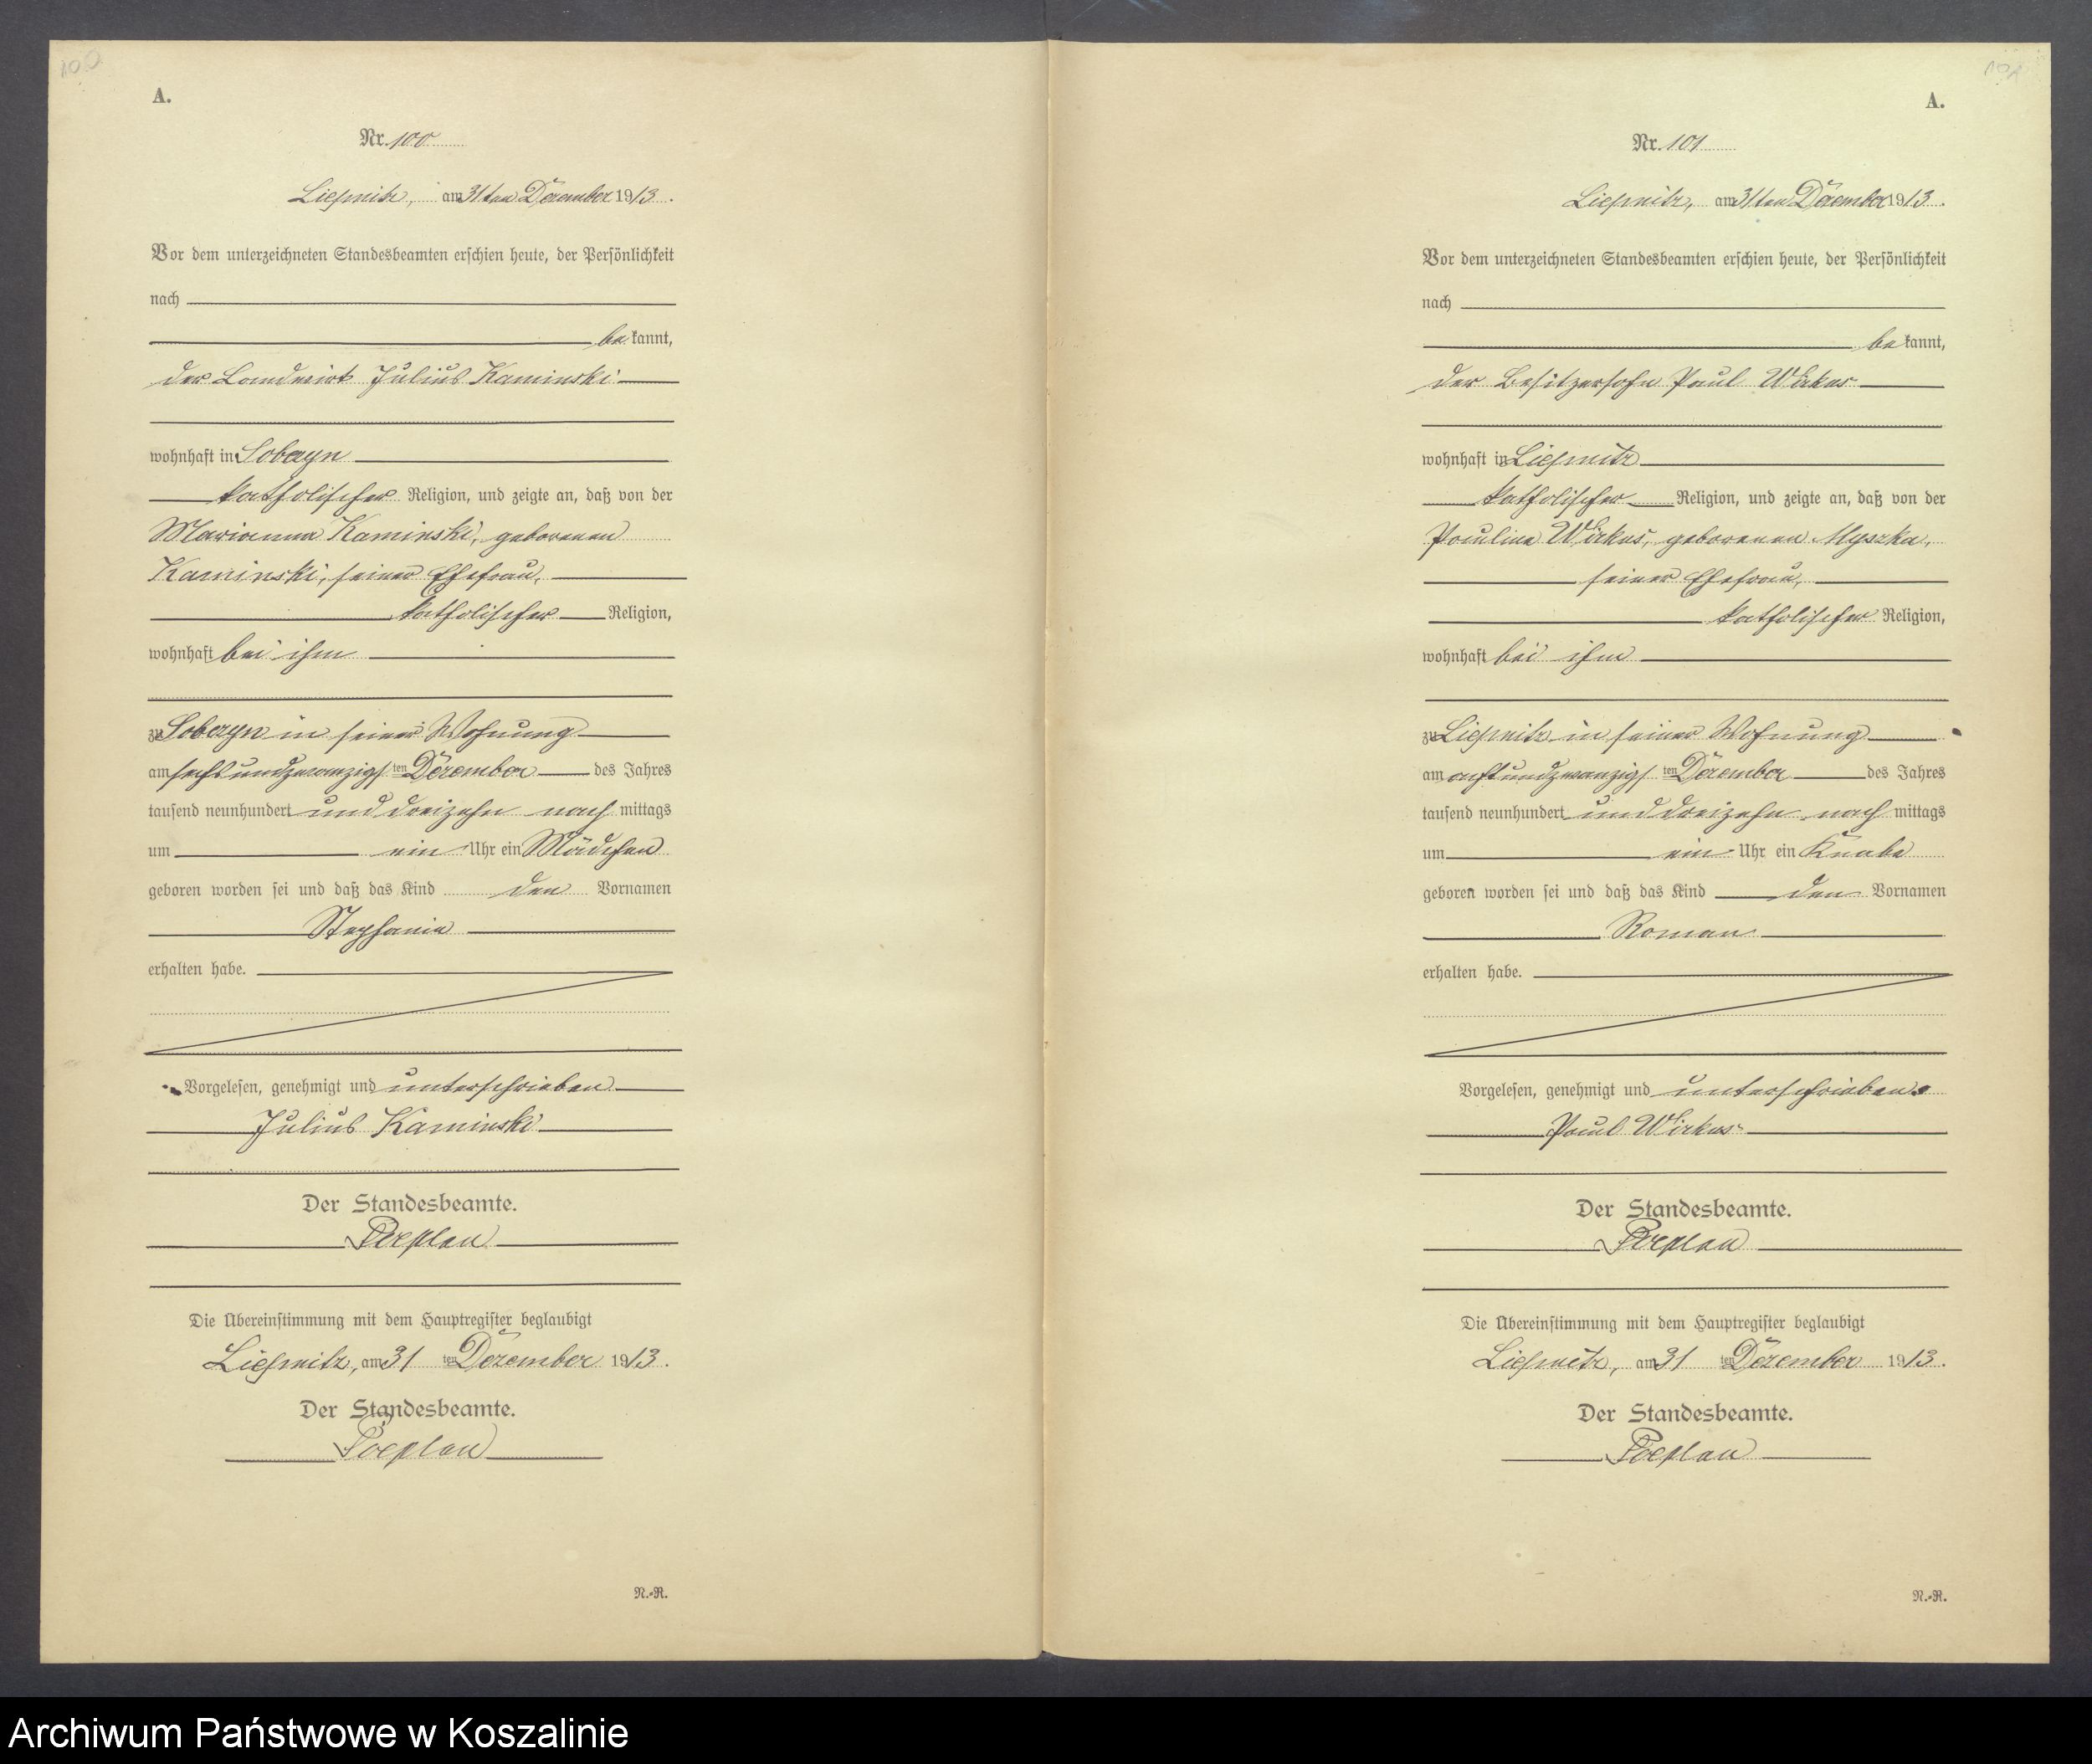 100
A.
Nr. 100
Liepnitz, am 31ten Dezember 1913.
Vor dem unterzeichneten Standesbeamten erschien heute, der Persönlichkeit
nach
be kannt,
der Landwirt Julius Kaminski
wohnhaft in Sobczyn
katholischer Religion, und zeigte an, daß von der
Marianna Kaminski, geborenen
Kaminski, seiner Ehefrau,
katholischer Religion,
wohnhaft bei ihm
zu Sobczyn in seiner Wohnung
am sechsundzwanzigsten Dezember des Jahres
tausend neunhundert und dreizehn nach mittags
um ein Uhr ein Mädchen
geboren worden sei und daß das Kind den Vornamen
Stephanie
erhalten habe.
Vorgelesen, genehmigt und unterschrieben
Julius Kaminski
Der Standesbeamte.
Poeplau
Die Übereinstimmung mit dem Hauptregister beglaubigt
Liepnitz, am 31 ten Dezember 1913.
Der Standesbeamte.
Poeplau
N.-R.
A.
Nr. 101
Liepnitz, am 31ten Dezember 1913.
Vor dem unterzeichneten Standesbeamten erschien heute, der Persönlichkeit
nach
be kannt,
der Besitzersohn Paul Wirkus
wohnhaft in Liepnitz
katholischer Religion, und zeigte an, daß von der
Pauline Wirkus, geborenen Myszka,
seiner Ehefrau,
katholischer Religion,
wohnhaft bei ihm
zu Liepnitz in seiner Wohnung
am achtundzwanzigsten Dezember des Jahres
tausend neunhundert und dreizehn nach mittags
um ein Uhr ein Knabe
geboren worden sei und daß das Kind den Vornamen
Roman
erhalten habe.
Vorgelesen, genehmigt und unterschrieben.
Paul Wirkus
Der Standesbeamte.
Poeplau
Die Übereinstimmung mit dem Hauptregister beglaubigt
Liepnitz, am 31 ten Dezember 1913.
Der Standesbeamte.
Poeplau
N.-R.
Archiwum Państwowe w Koszalinie